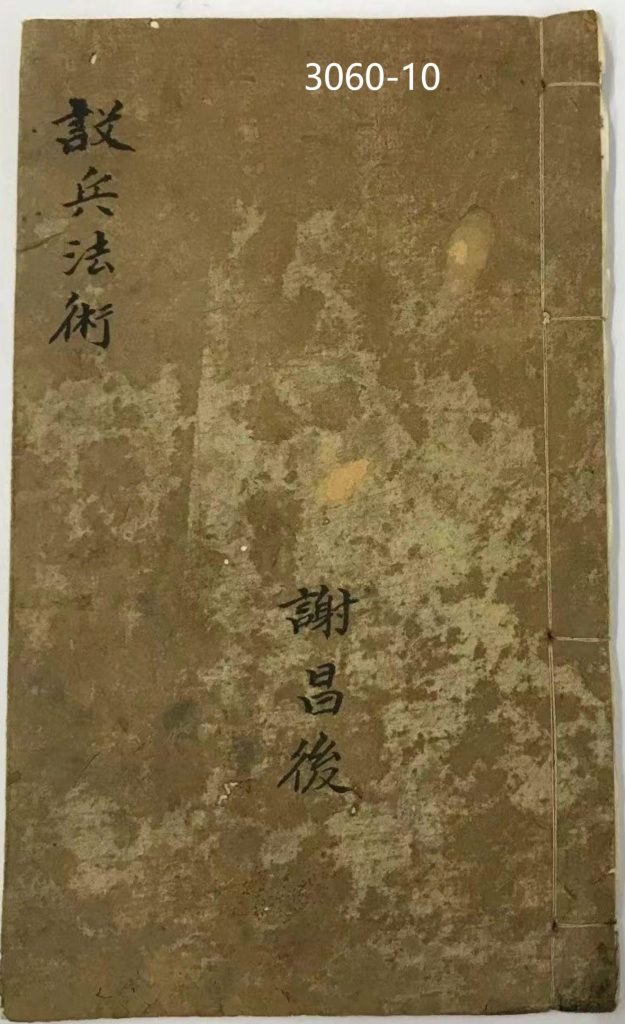 3060-10
設兵法術
謝昌後